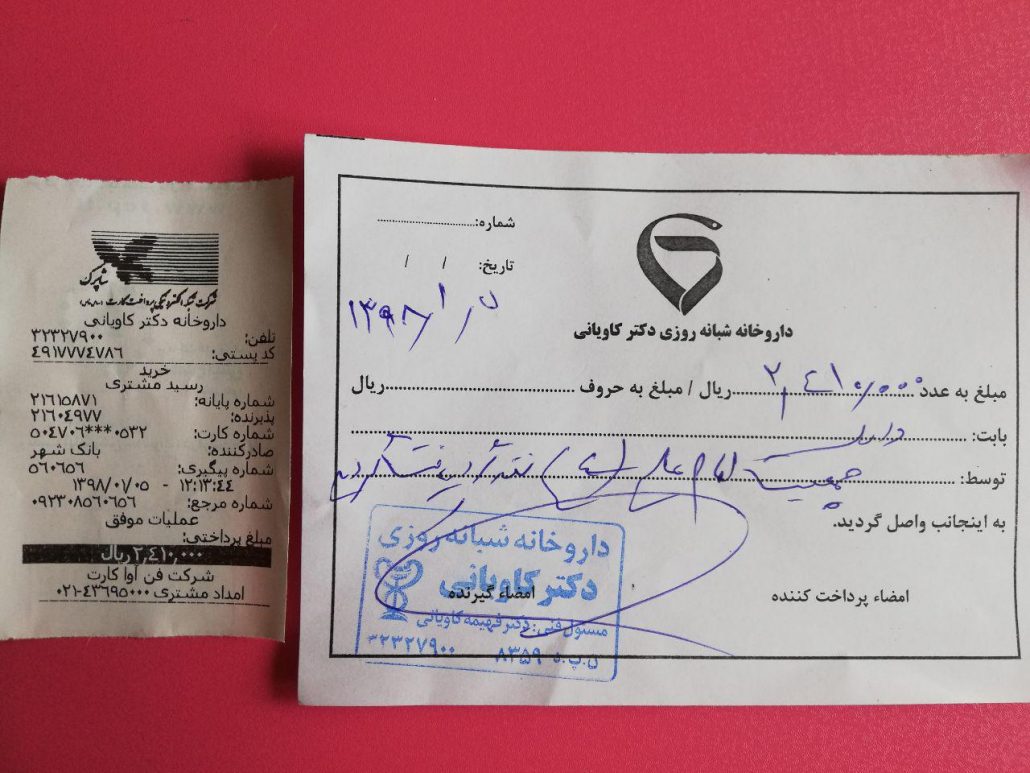 شاپرک
شرکت شبکه الکترونیکی پرداخت کارت
داروخانه دکتر کاویانی
تلفن: ۳۲۳۲۷۹۰۰
کد پستی: ۴۹۱۷۷۷۴۷۸۶
خرید
رسید مشتری
شماره پایانه: ۲۱۶۱۵۸۷۱
پذیرنده: ۲۱۶۰۴۹۷۷
شماره کارت: ۵۰۴۷۰۶***۰۵۳۲
صادرکننده: بانک شهر
شماره پیگیری: ۵۶۰۶۵۶
۱۳۹۸/۰۱/۰۵ - ۱۲:۱۳:۴۴
شماره مرجع: ۰۹۲۳۰۸۵۶۰۶۵۶
عملیات موفق
مبلغ پرداختی:
۲,۴۱۰,۰۰۰ ریال
شرکت فن آوا کارت
امداد مشتری ۴۳۶۹۵۰۰۰-۰۲۱
شماره:
تاریخ: / /
۱۳۹۸/۱/۵
داروخانه شبانه روزی دکتر کاویانی
مبلغ به عدد ۲,۴۱۰,۰۰۰ ریال / مبلغ به حروف ریال
بابت: دارو
توسط: جمعیت امام علی
به اینجانب واصل گردید.
امضاء پرداخت کننده
امضاء گیرنده
داروخانه شبانه روزی
دکتر کاویانی
مسئول فنی: دکتر فهیمه کاویانی
ن.پ.د ۸۳۵۹ ۳۲۳۲۷۹۰۰